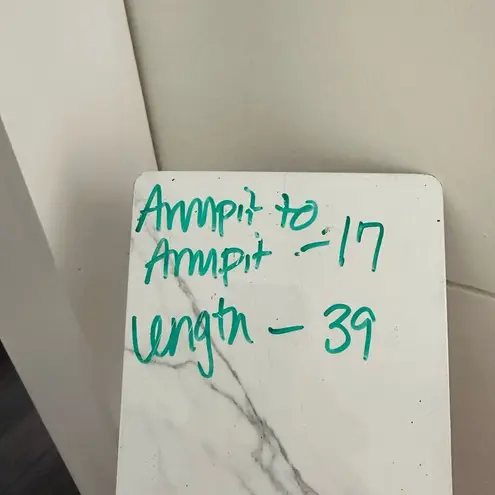 Armpit to
Armpit - 17
Length - 39